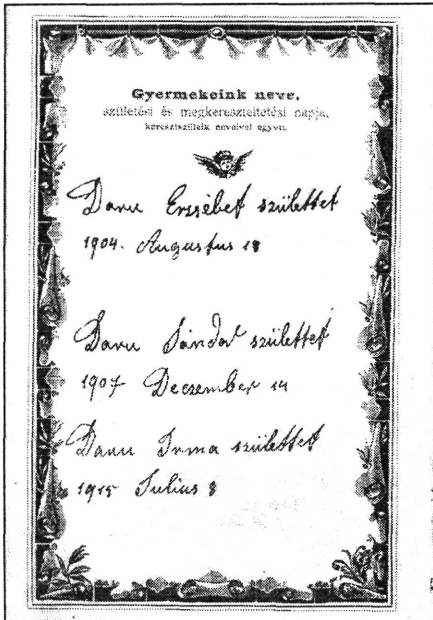 Gyermekeink neve,
születési és megkereszteltetési napja,
keresztszüleik neveivel együtt.
Danu Erzsébet születtet
1904. Augustus 18
Danu Sándor születtet
1907 Deczember 14
Danu Irma születtet
1915 Julius 8